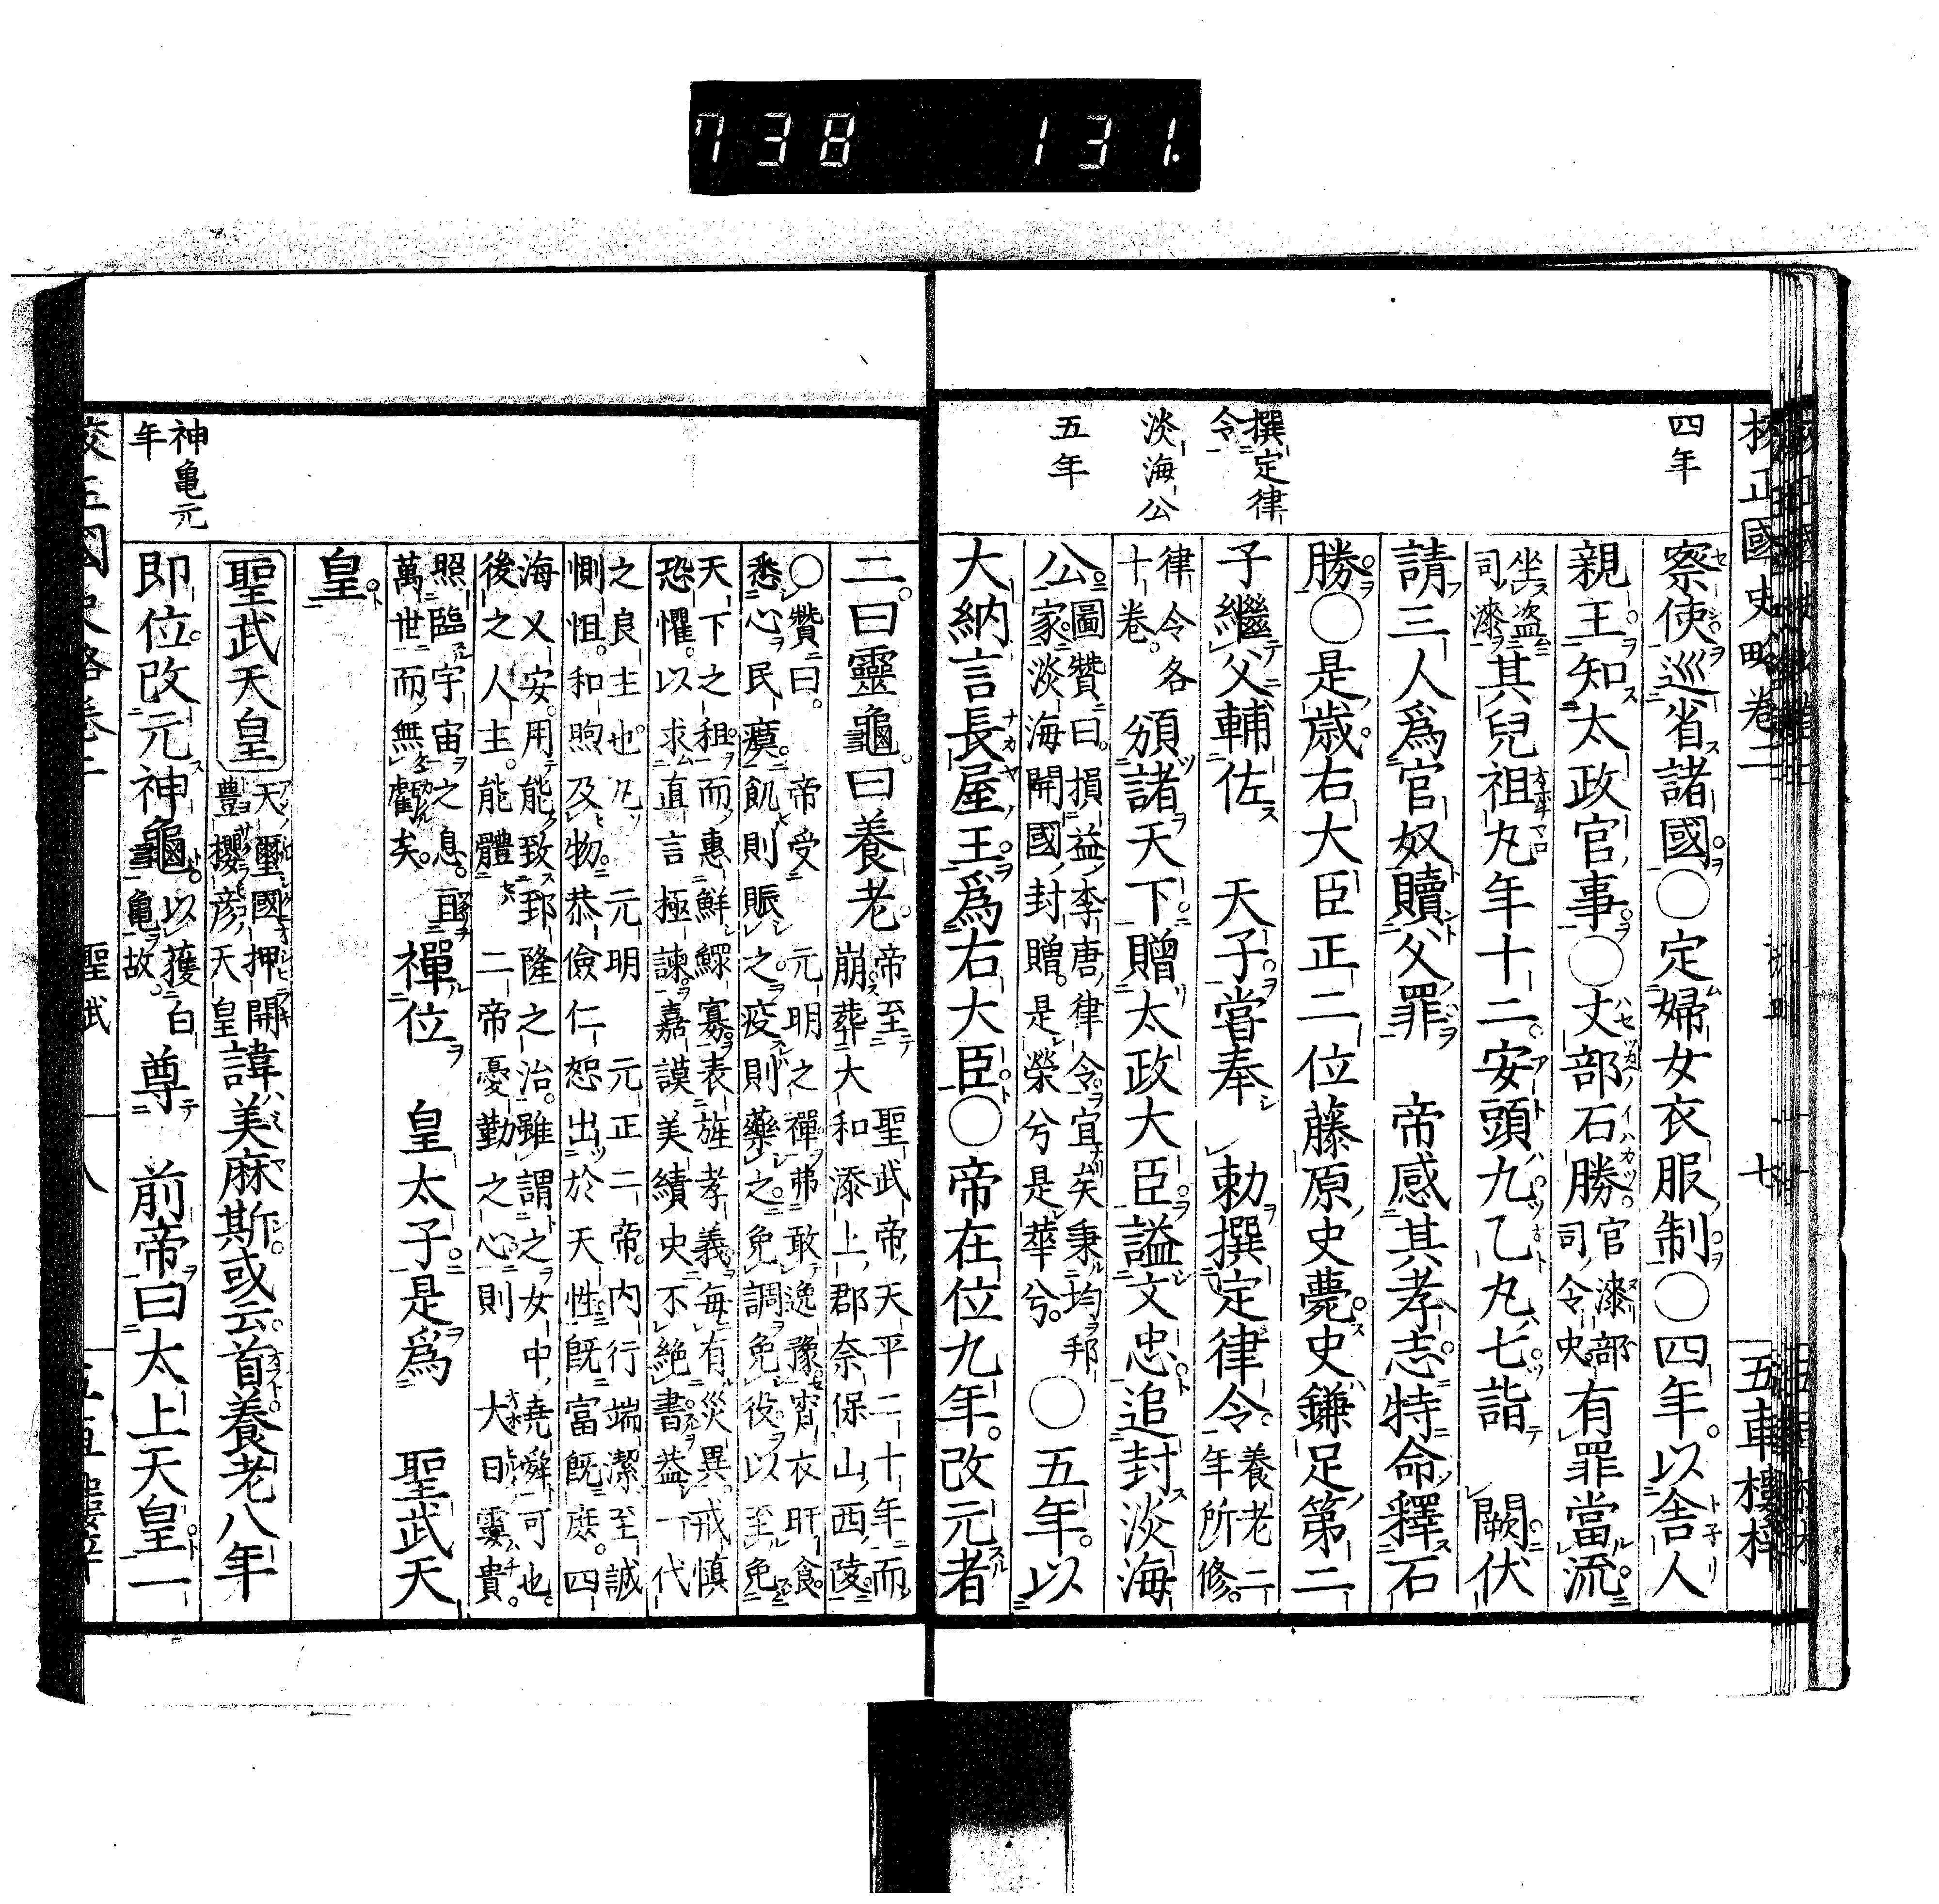 738 131.
校正國史略卷二 七 五車樓梓
四年
撰定律令
淡海公
五年
察使巡省諸國○定婦女衣服制○四年以舍人
親王知太政官事○丈部石勝官漆部司令史有罪當流
坐盜司漆其兒祖丸年十二安頭九乙丸七詣 闕伏
請三人爲官奴贖父罪 帝感其孝志特命釋石
勝○是歳右大臣正二位藤原史薨史鎌足第二
子繼父輔佐 天子嘗奉 勅撰定律令養老二年所修
律令各十卷頒諸天下贈太政大臣謚文忠追封淡海
公圖贊曰損益李唐律令宜矣秉均邦家淡海開國封贈是榮兮是華兮○五年以
大納言長屋王爲右大臣○帝在位九年改元者
神亀元年
二曰靈龜曰養老帝至 聖武帝天平二十年而崩葬大和添上郡奈保山西陵
○贊曰 帝受 元明之禪弗敢逸豫宵衣旰食
悉心民瘼飢則賑之疫則藥之免調免役以至免
天下之租而惠鮮鰥寡表旌孝義每有災異戒慎
恐懼以求直言極諫嘉謨美績史不絶書蓋一代
之良主也凡 元明 元正二帝内行端潔至誠
惻怛和煦及物恭儉仁恕出於天性既富既庶四
海乂安用能致郅隆之治雖謂之女中堯舜可也
後之人主能體 二帝憂勤之心則 大日孁貴
照臨宇宙之息
萬世而無虧矣 禪位 皇太子是爲 聖武天
皇
聖武天皇天璽國押開豐櫻彦天皇諱美麻斯或云首養老八年
即位改元神龜以獲白亀故 尊 前帝曰太上天皇一
聖武 八